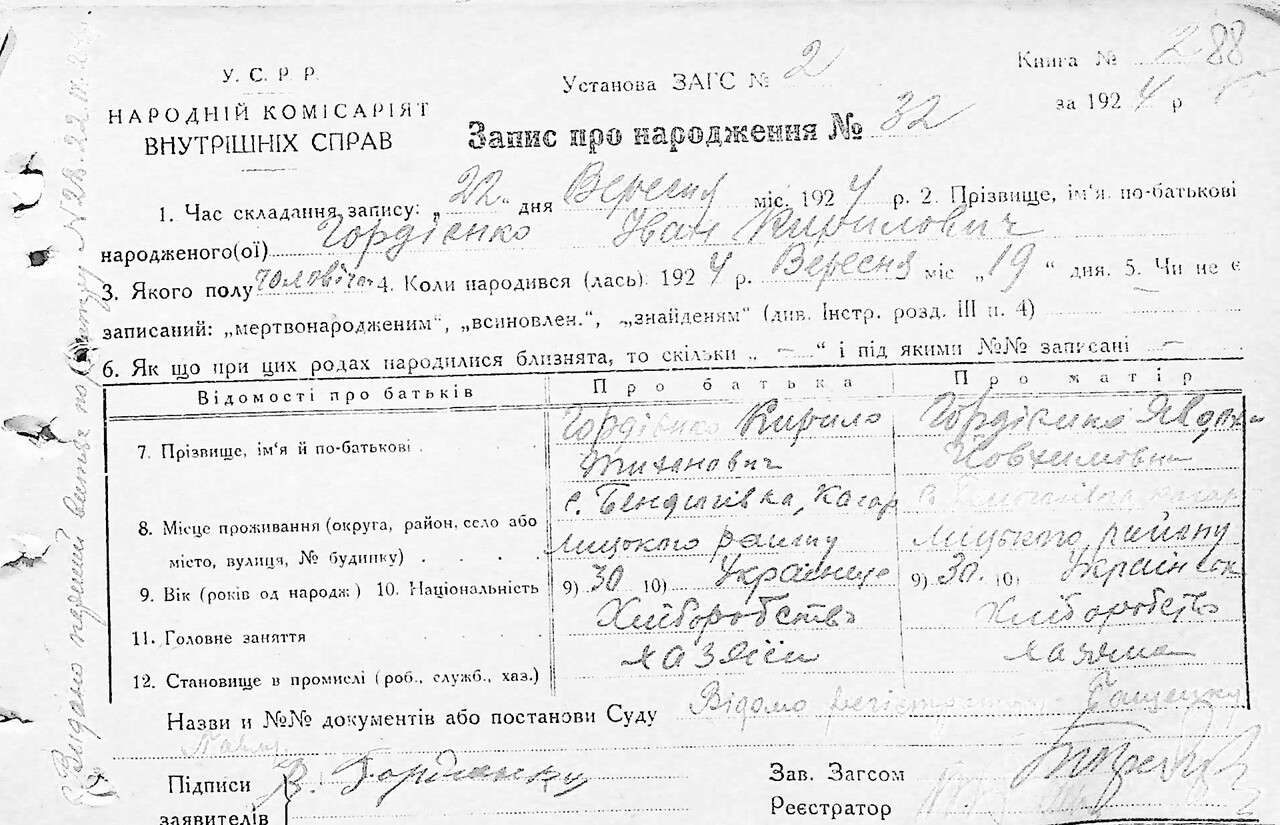 Книга № 288
У. С. Р. Р.
Установа ЗАГС № 2
за 1924 р
НАРОДНІЙ КОМІСАРІЯТ
ВНУТРІШНІХ СПРАВ
Запис про народження № 32
1. Час складання запису: „22" дня Вересня міс. 1924 р. 2. Прізвище, ім'я, по-батькові
народженого(ої) Гордієнко Іван Кирилович
3. Якого полу чоловіч. 4. Коли народився (лась): 1924 р. Вересня міс „19" дня. 5. Чи не є
записаний: „мертвонародженим", „всиновлен.", „знайденям" (див. Інстр. розд. III п. 4)
6. Як що при цих родах народилися близнята, то скільки „ — " і під якими №№ записані —
Відомості про батьків Про батька Про матір
7. Прізвище, ім'я й по-батькові
Гордієнко Кирило Гордієнко Явдоха
Титанович Йовхимовна
8. Місце проживання (округа, район, село або
місто, вулиця, № будинку)
с. Бендюгівка, Кагар кагар
лицького району лицького району
9. Вік (років од народж.) 10. Національність 9) 30 10) Українце 9) 30. 10) Українсκ
11. Головне заняття Хліборобство Хліборобство
12. Становище в промислі (роб., служб., хаз.) хазяїн хазяйка
Назви и №№ документів або постанови Суду Відомо регістратору
Підписи
заявителів
Зав. Загсом
Реєстратор
Видано перший витяг по